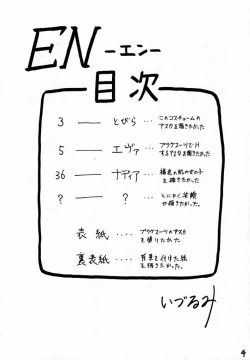 EN
-エン-
目次
3 — とびら … このコスチュームの
アスカを描きたかった
5 — エヴァ … プラグスーツでH
するアスカを描きたかった
36 — ナディア … 褐色の肌の女の子
を描きたかった
? — ? … とにかく
が描きたかった。
表紙 …… プラグスーツのアスカ
を塗りたかった
裏表紙 …… 背景を付けた紙
を描きたかった。
いづるみ
4